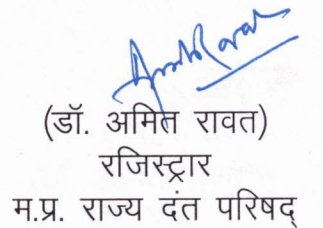 (डॉ. अमित रावत)
रजिस्ट्रार
म.प्र. राज्य दंत परिषद्